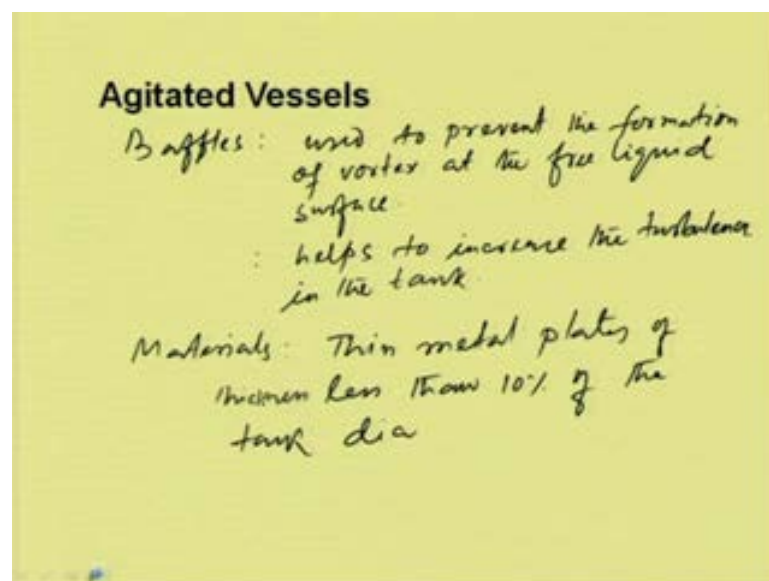 Agitated Vessels
Baffles: used to prevent the formation
of vortex at the free liquid
surface.
: helps to increase the turbulence
in the tank.
Materials: Thin metal plates of
thickness less than 10% of the
tank dia